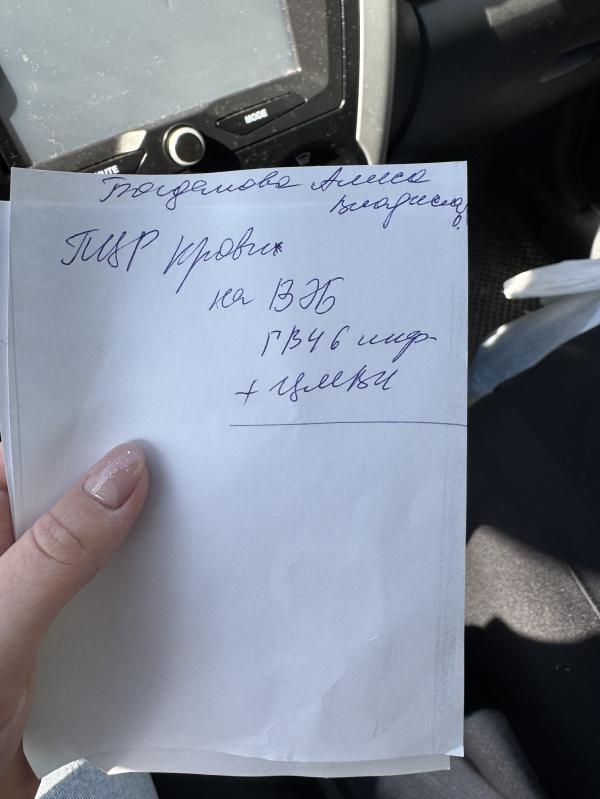 MODE
MUTE
Богданова Алиса
Владислав
ПЦР крови
на ВЭБ
ГВЧ 6 инф-
+ ЦМВИ